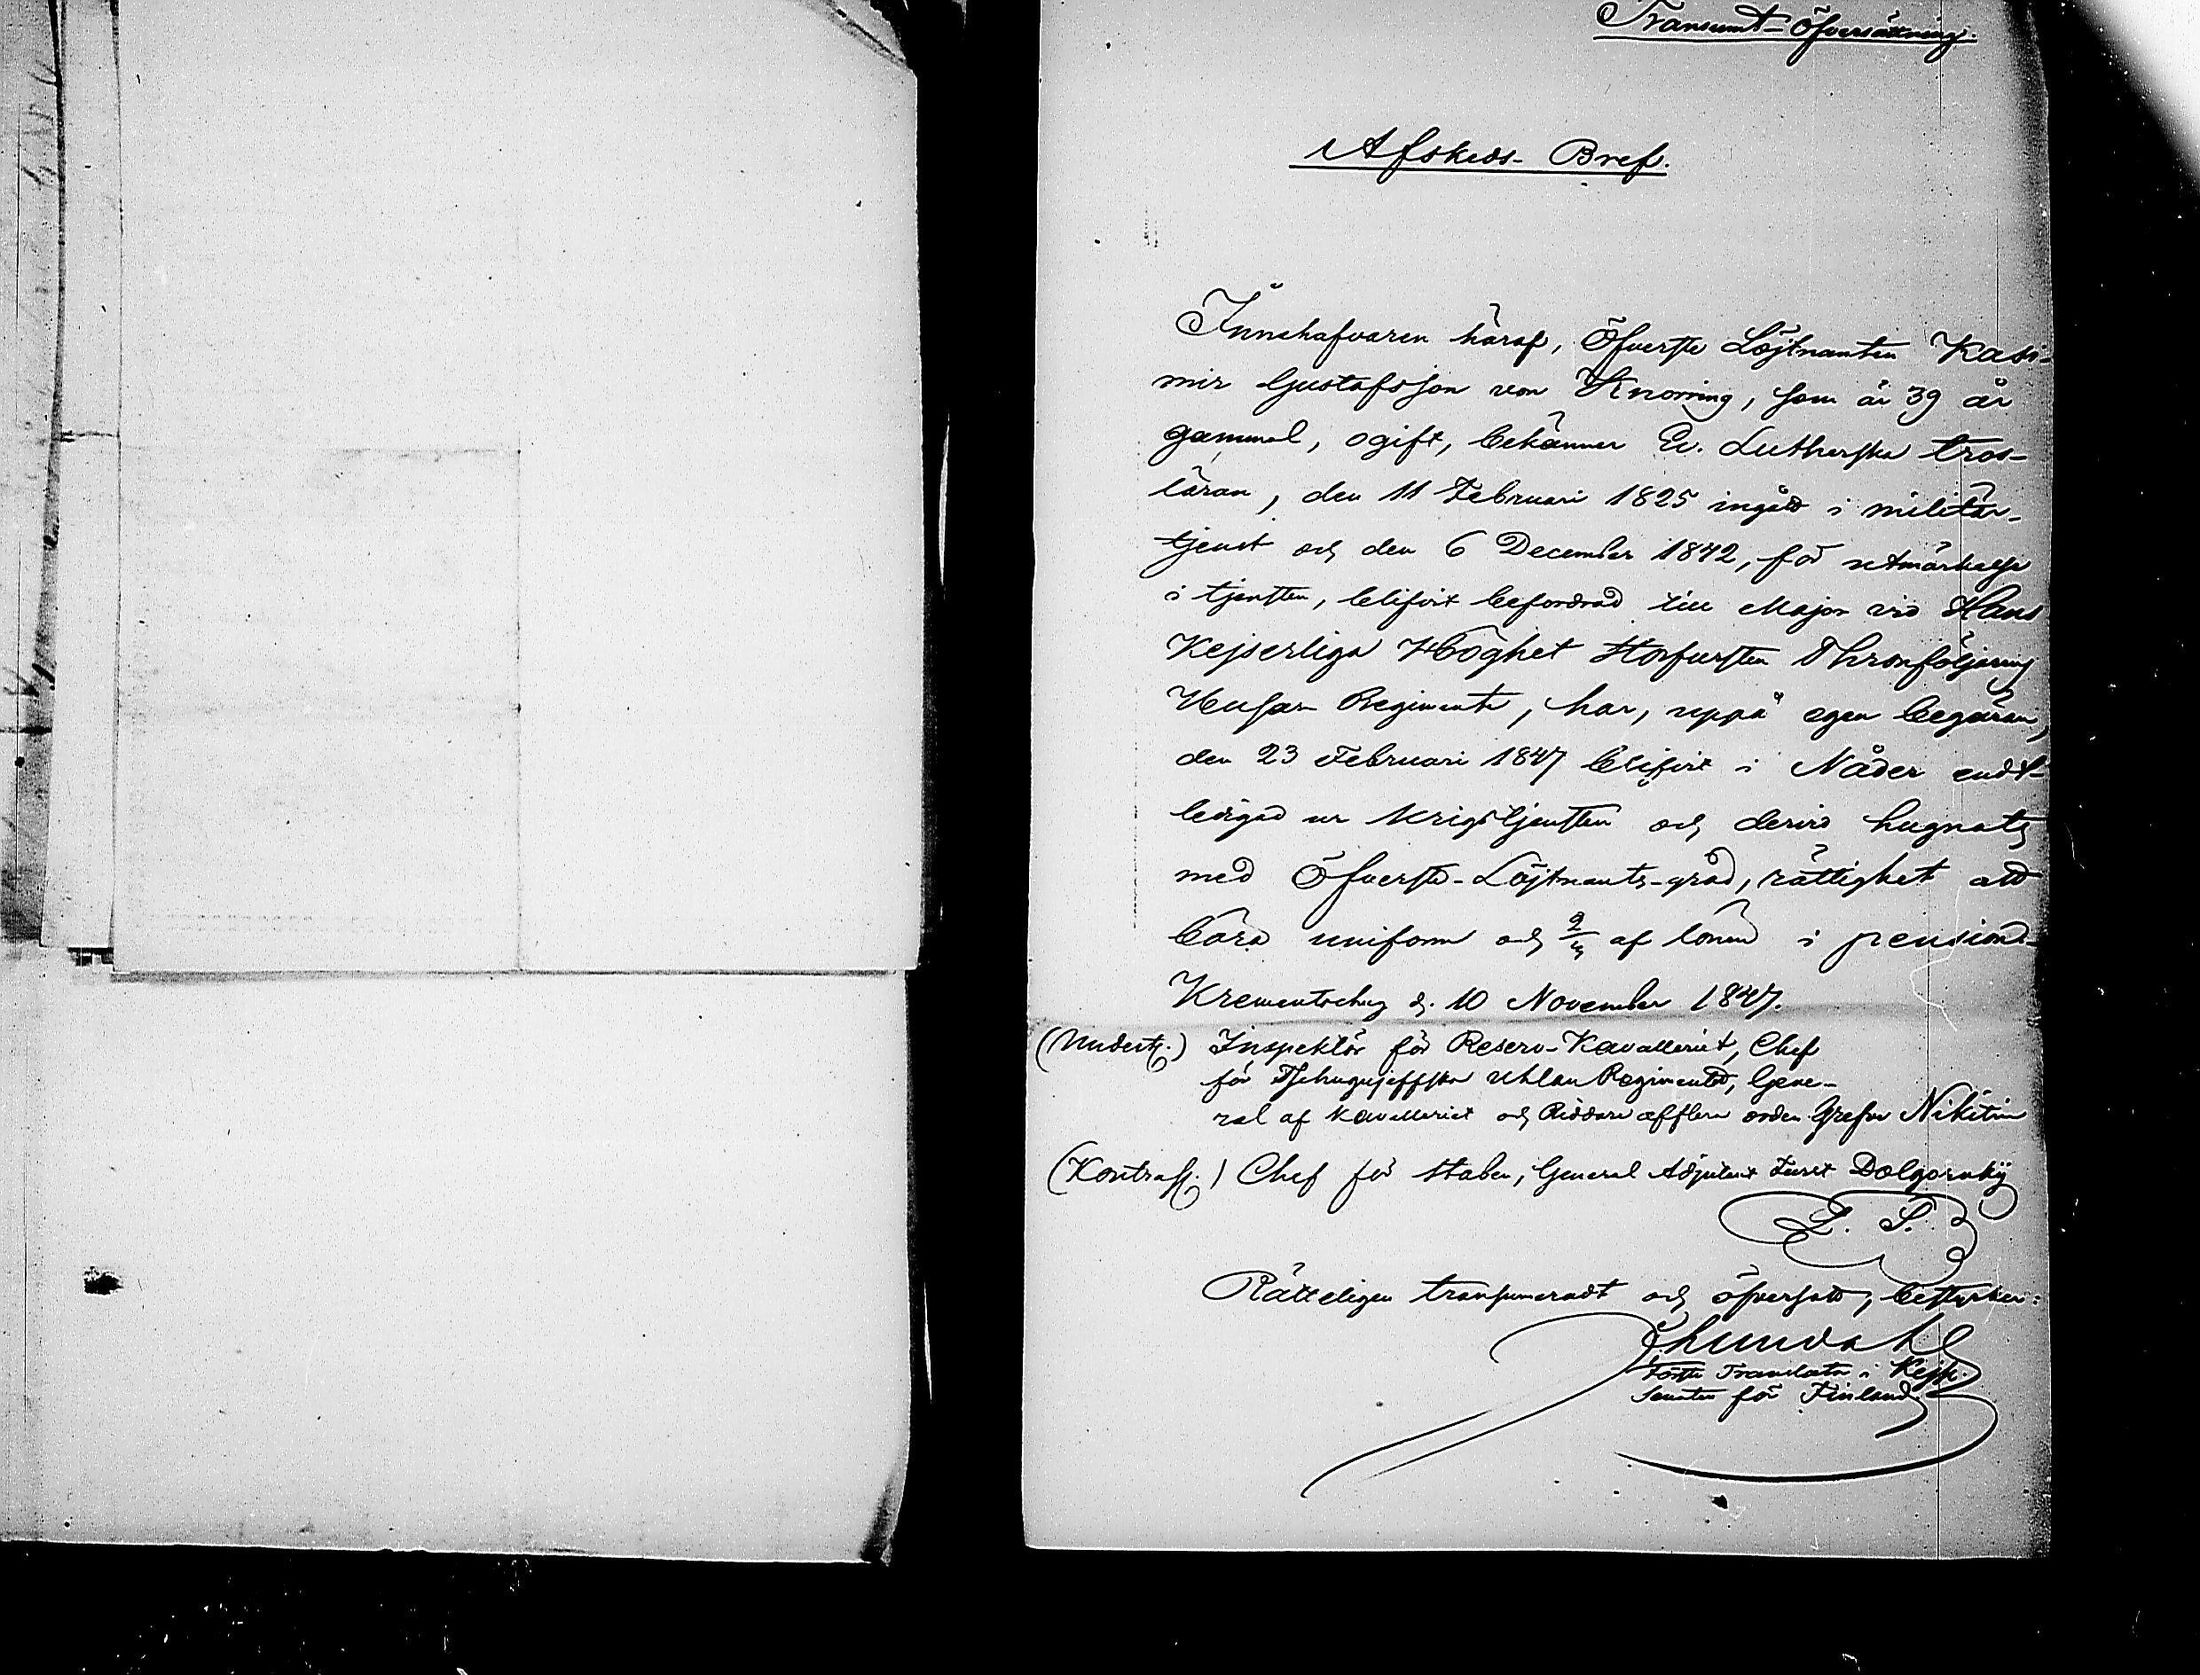 Transumt-Öfversättning.
Afskeds-Bref.
Innehafvaren häraf, Öfverste Löjtnanten Kasi-
mir Gustafsson von Knorring, som är 39 år
gammal, ogift, bekänner Ev. Lutherska tros-
läran, den 11 Februari 1825 ingått i militär-
tjenst och den 6 December 1842, för utmärkelse
i tjensten, blifvit befordrad till Major vid Hans
Kejserliga Höghet Storfursten Thronföljarens
Husar Regimente, har, uppå egen begäran,
den 23 Februari 1847 blifvit i Nåder endt-
ledigad ur krigstjensten och dervid hugnats
med Öfverste-Löjtnants-grad, rättighet att
bära uniform och 2/3 af lönen i pension.
Krementschug d. 10 November 1847.
(Undert.) Inspektör för Reserv-Kavalleriet, Chef
för Tschugujeffska Uhlan Regimentet, Gene-
ral af Kavalleriet och Riddare af flere orden Grefve Nikitin
(Kontras.) Chef för Staben, General Adjutant Furst Dolgoruky
L. S.
Rätteligen transumeradt och öfversatt, bestyrker:
Förste Translator i Kejs.
Senaten för Finland.